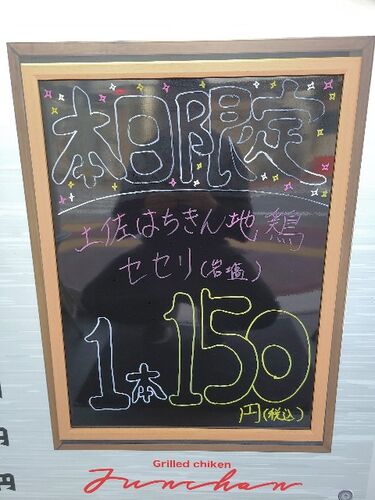 本日限定
土佐はちきん地鶏
セセリ(岩塩)
1本150
円(税込)
円
円
Grilled chiken
Junchan